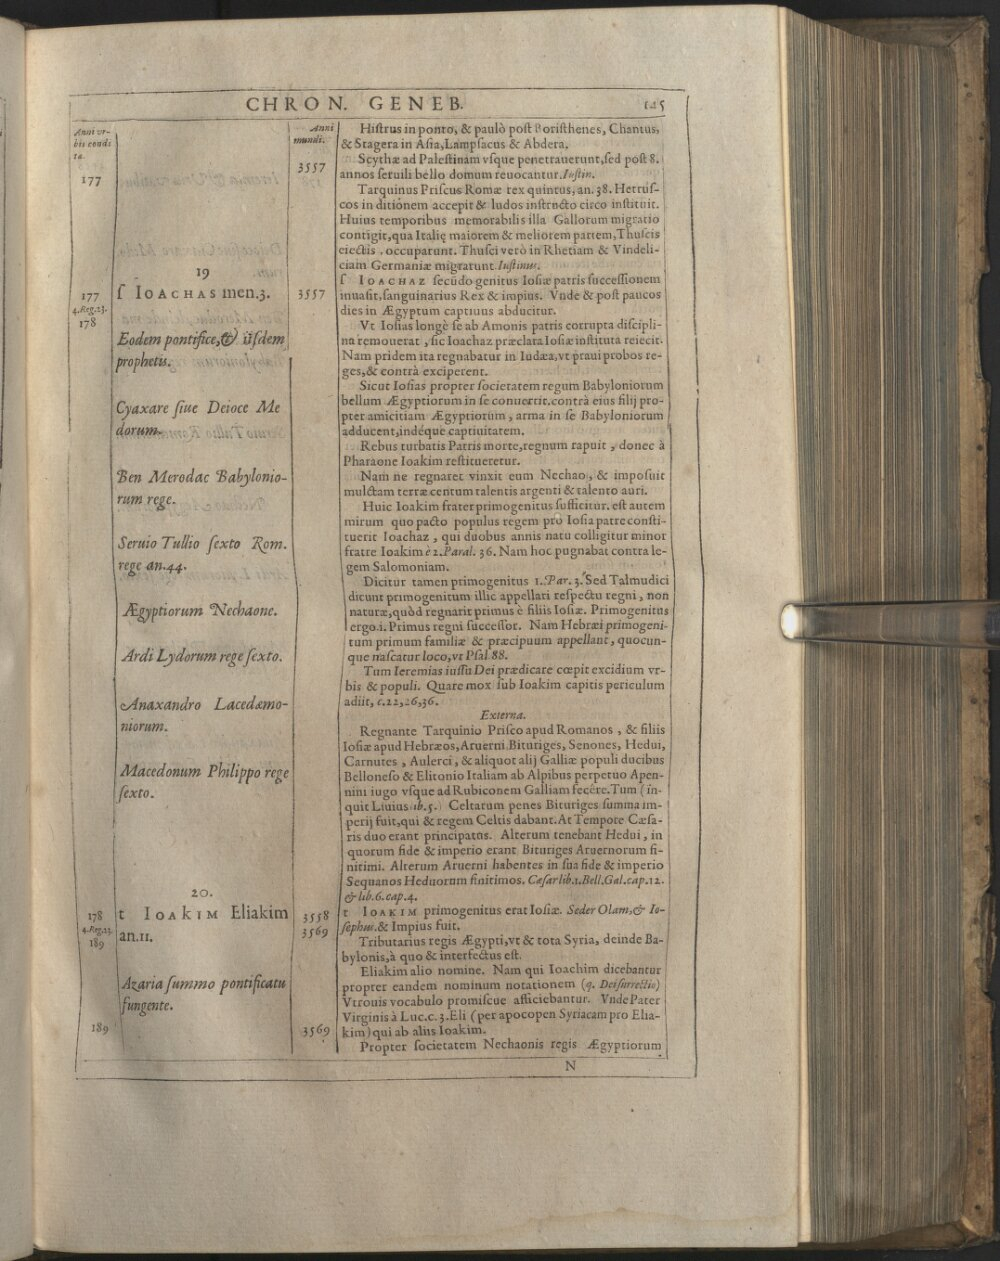 CHRON. GENEB.
Anni vr-
bis condi
tæ.
177
177
4.Reg.23.
178
178
4.Reg.23.
189
189
19
ſ IOACHAS men.3.
Eodem pontifice, & iiſdem
prophetis.
Cyaxare ſiue Deioce Me
dorum.
Ben Merodac Babylonio-
rum rege.
Seruio Tullio ſexto Rom.
rege an.44.
Ægyptiorum Nechaone.
Ardi Lydorum rege ſexto.
Anaxandro Lacedæmo-
niorum.
Macedonum Philippo rege
ſexto.
20.
t IOAKIM Eliakim
an.11.
Azaria ſummo pontificatu
fungente.
Anni
mundi.
3557
3557
3558
3569
3569
Hiſtrus in ponto, & paulò poſt Boriſthenes, Chantus,
& Stagera in Aſia, Lampſacus & Abdera.
Scythæ ad Paleſtinam vſque penetrauerunt, ſed poſt 8.
annos ſeruili bello domum reuocantur. Iuſtin.
Tarquinus Priſcus Romæ rex quintus, an. 38. Hetruſ-
cos in ditionem accepit & ludos inſtructo circo inſtituit.
Huius temporibus memorabilis illa Gallorum migratio
contigit, qua Italię maiorem & meliorem partem, Thuſcis
eiectis, occuparunt. Thuſci verò in Rhetiam & Vindeli-
ciam Germaniæ migratunt. Iuſtinus.
ſ IOACHAZ ſecūdo genitus Ioſiæ patris ſucceſſionem
inuaſit, ſanguinarius Rex & impius. Vnde & poſt paucos
dies in Ægyptum captiuus abducitur.
Vt Ioſias longè ſe ab Amonis patris corrupta diſcipli-
na remouerat, ſic Ioachaz præclara Ioſiæ inſtituta reiecit.
Nam pridem ita regnabatur in Iudæa, vt praui probos re-
ges, & contrà exciperent.
Sicut Ioſias propter ſocietatem regum Babyloniorum
bellum Ægyptiorum in ſe conuertit. contrà eius filij pro-
pter amicitiam Ægyptiorum, arma in ſe Babyloniorum
adducent, indéque captiuitatem.
Rebus turbatis Patris morte, regnum rapuit, donec à
Pharaone Ioakim reſtitueretur.
Nam ne regnaret vinxit eum Nechao, & impoſuit
mulctam terræ centum talentis argenti & talento auri.
Huic Ioakim frater primogenitus ſufficitur. eſt autem
mirum quo pacto populus regem pro Ioſia patre conſti-
tuerit Ioachaz, qui duobus annis natu colligitur minor
fratre Ioakim è 2. Paral. 36. Nam hoc pugnabat contra le-
gem Salomoniam.
Dicitur tamen primogenitus 1. Par. 3. Sed Talmudici
dicunt primogenitum illic appellari reſpectu regni, non
naturæ, quòd regnarit primus è filiis Ioſiæ. Primogenitus
ergo. i. Primus regni ſucceſſor. Nam Hebræi primogeni-
tum primum familiæ & præcipuum appellant, quocun-
que naſcatur loco, vt Pſal 88.
Tum Ieremias iuſſu Dei prædicare cœpit excidium vr-
bis & populi. Quare mox ſub Ioakim capitis periculum
adiit, c. 22, 26, 36.
Externa.
Regnante Tarquinio Priſco apud Romanos, & filiis
Ioſiæ apud Hebræos, Aruerni Bituriges, Senones, Hedui,
Carnutes, Aulerci, & aliquot alij Galliæ populi ducibus
Belloneſo & Elitonio Italiam ab Alpibus perpetuo Apen-
nini iugo vſque ad Rubiconem Galliam fecére. Tum (in-
quit Liuius lib. 5.) Celtarum penes Bituriges ſumma im-
perij fuit, qui & regem Celtis dabant. At Tempore Cæſa-
ris duo erant principatus. Alterum tenebant Hedui, in
quorum fide & imperio erant Bituriges Aruernorum fi-
nitimi. Alterum Aruerni habentes in ſua fide & imperio
Sequanos Heduorum finitimos. Cæſar lib. 1. Bell. Gal. cap. 12.
& lib. 6. cap. 4.
t IOAKIM primogenitus erat Ioſiæ. Seder Olam, & Io-
ſephus. & Impius fuit.
Tributarius regis Ægypti, vt & tota Syria, deinde Ba-
bylonis, à quo & interfectus eſt.
Eliakim alio nomine. Nam qui Ioachim dicebantur
propter eandem nominum notationem (q. Dei ſurrectio)
Vtrouis vocabulo promiſcue afficiebantur. Vnde Pater
Virginis à Luc. c. 3. Eli (per apocopen Syriacam pro Elia-
kim) qui ab aliis Ioakim.
Propter ſocietatem Nechaonis regis Ægyptiorum
N